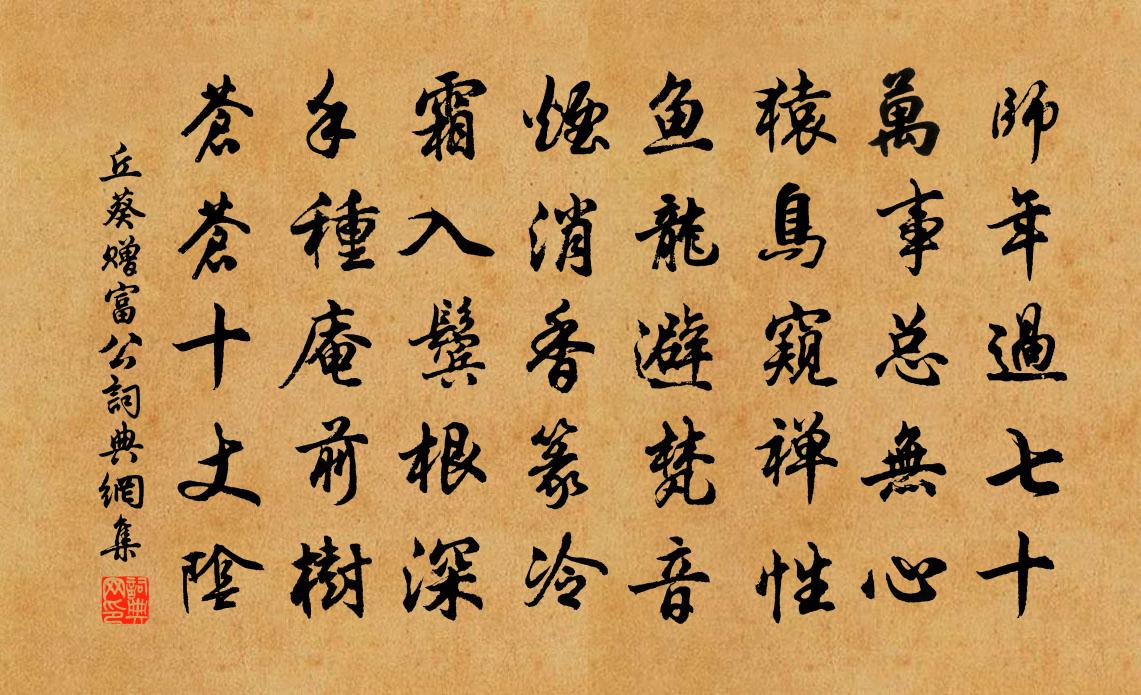 師年過七十
萬事总無心
猿鳥窺禅性
鱼龍避梵音
煙消香篆冷
霜入鬓根深
手種庵前樹
蒼蒼十丈陰
丘葵赠富公詞典網集
詞典网印